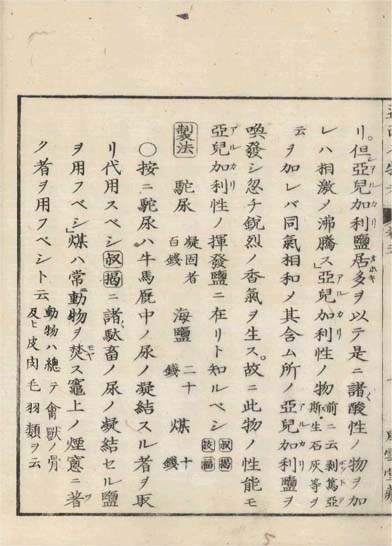 リ。但亞兒加利鹽居多ヲ以テ是ニ諸酸性ノ物ヲ加
レハ相激メ沸騰ス」亞兒加利性ノ物前ニ云剥篤亞斯生石灰等ヲ
云ヲ加レバ同氣相和メ其含ム所ノ亞兒加利鹽ヲ
喚發シ忽チ鋭烈ノ香氣ヲ生ス。故ニ此物ノ性能モ
亞兒加利性ノ揮發鹽ニ在リト知ルベシ 叔揭
製法 駝尿 凝固者百錢 海鹽 二十錢 煤 十錢
〇按ニ駝尿ハ牛馬厩中ノ尿ノ凝結スル者ヲ取
リ代用スベシ 叔揭ニ諸駄畜ノ尿ノ凝結セル鹽
ヲ用フベシ」煤ハ常ニ動物ヲ焚ス竈上ノ煙窓ニ著
ク者ヲ用フベシト云 動物ハ總テ禽獸ノ骨及ヒ皮肉毛羽類ヲ云
5